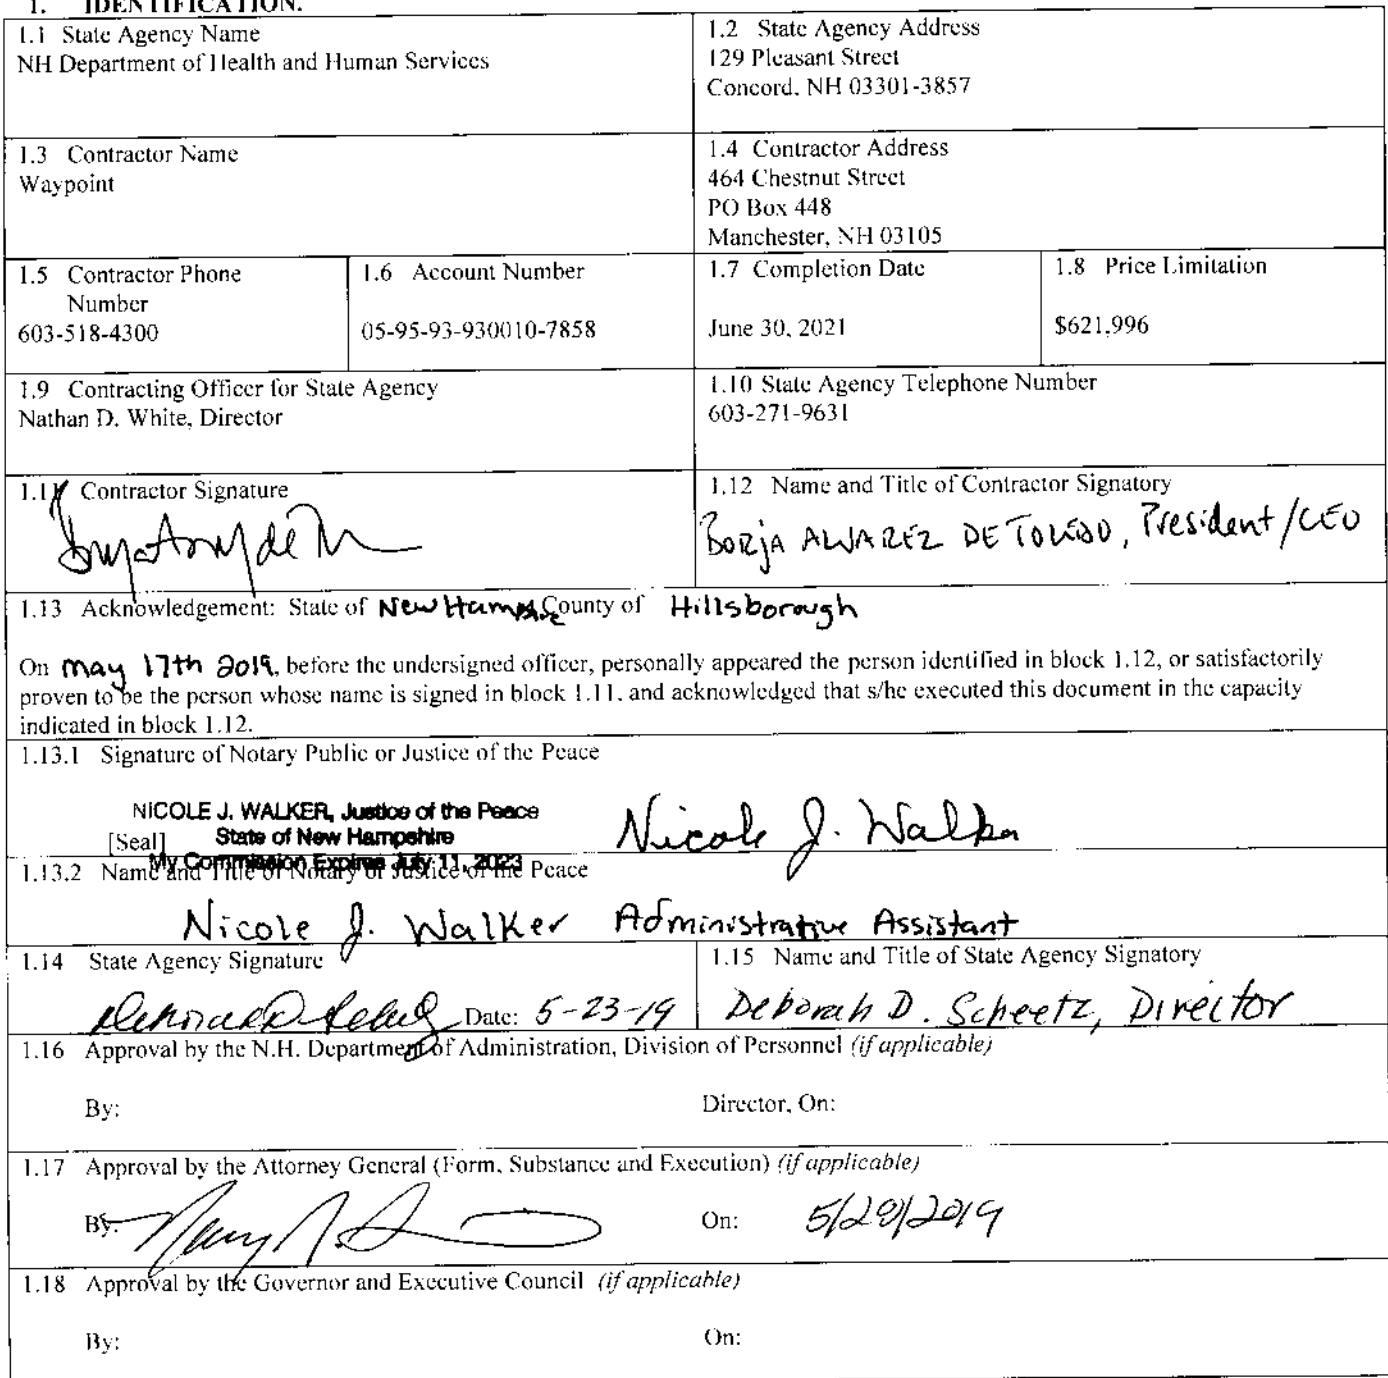 1. IDENTIFICATION.
1.1 State Agency Name
NH Department of Health and Human Services
1.2 State Agency Address
129 Pleasant Street
Concord, NH 03301-3857
1.3 Contractor Name
Waypoint
1.4 Contractor Address
464 Chestnut Street
PO Box 448
Manchester, NH 03105
1.5 Contractor Phone
Number
603-518-4300
1.6 Account Number
05-95-93-930010-7858
1.7 Completion Date
June 30, 2021
1.8 Price Limitation
$621,996
1.9 Contracting Officer for State Agency
Nathan D. White, Director
1.10 State Agency Telephone Number
603-271-9631
1.11 Contractor Signature
1.12 Name and Title of Contractor Signatory
Borja ALVAREZ DE TOLEDO, President/CEO
1.13 Acknowledgement: State of New Hampshire County of Hillsborough
On may 17th 2019, before the undersigned officer, personally appeared the person identified in block 1.12, or satisfactorily
proven to be the person whose name is signed in block 1.11, and acknowledged that s/he executed this document in the capacity
indicated in block 1.12.
1.13.1 Signature of Notary Public or Justice of the Peace
NICOLE J. WALKER, Justice of the Peace
[Seal] State of New Hampshire
My Commission Expires July 11, 2023
Nicole J. Walker
1.13.2 Name and Title of Notary or Justice of the Peace
Nicole J. Walker Administrative Assistant
1.14 State Agency Signature
Date: 5-23-19
1.15 Name and Title of State Agency Signatory
Deborah D. Scheetz, Director
1.16 Approval by the N.H. Department of Administration, Division of Personnel (if applicable)
By:
Director, On:
1.17 Approval by the Attorney General (Form, Substance and Execution) (if applicable)
By:
On:
1.18 Approval by the Governor and Executive Council (if applicable)
By:
On: